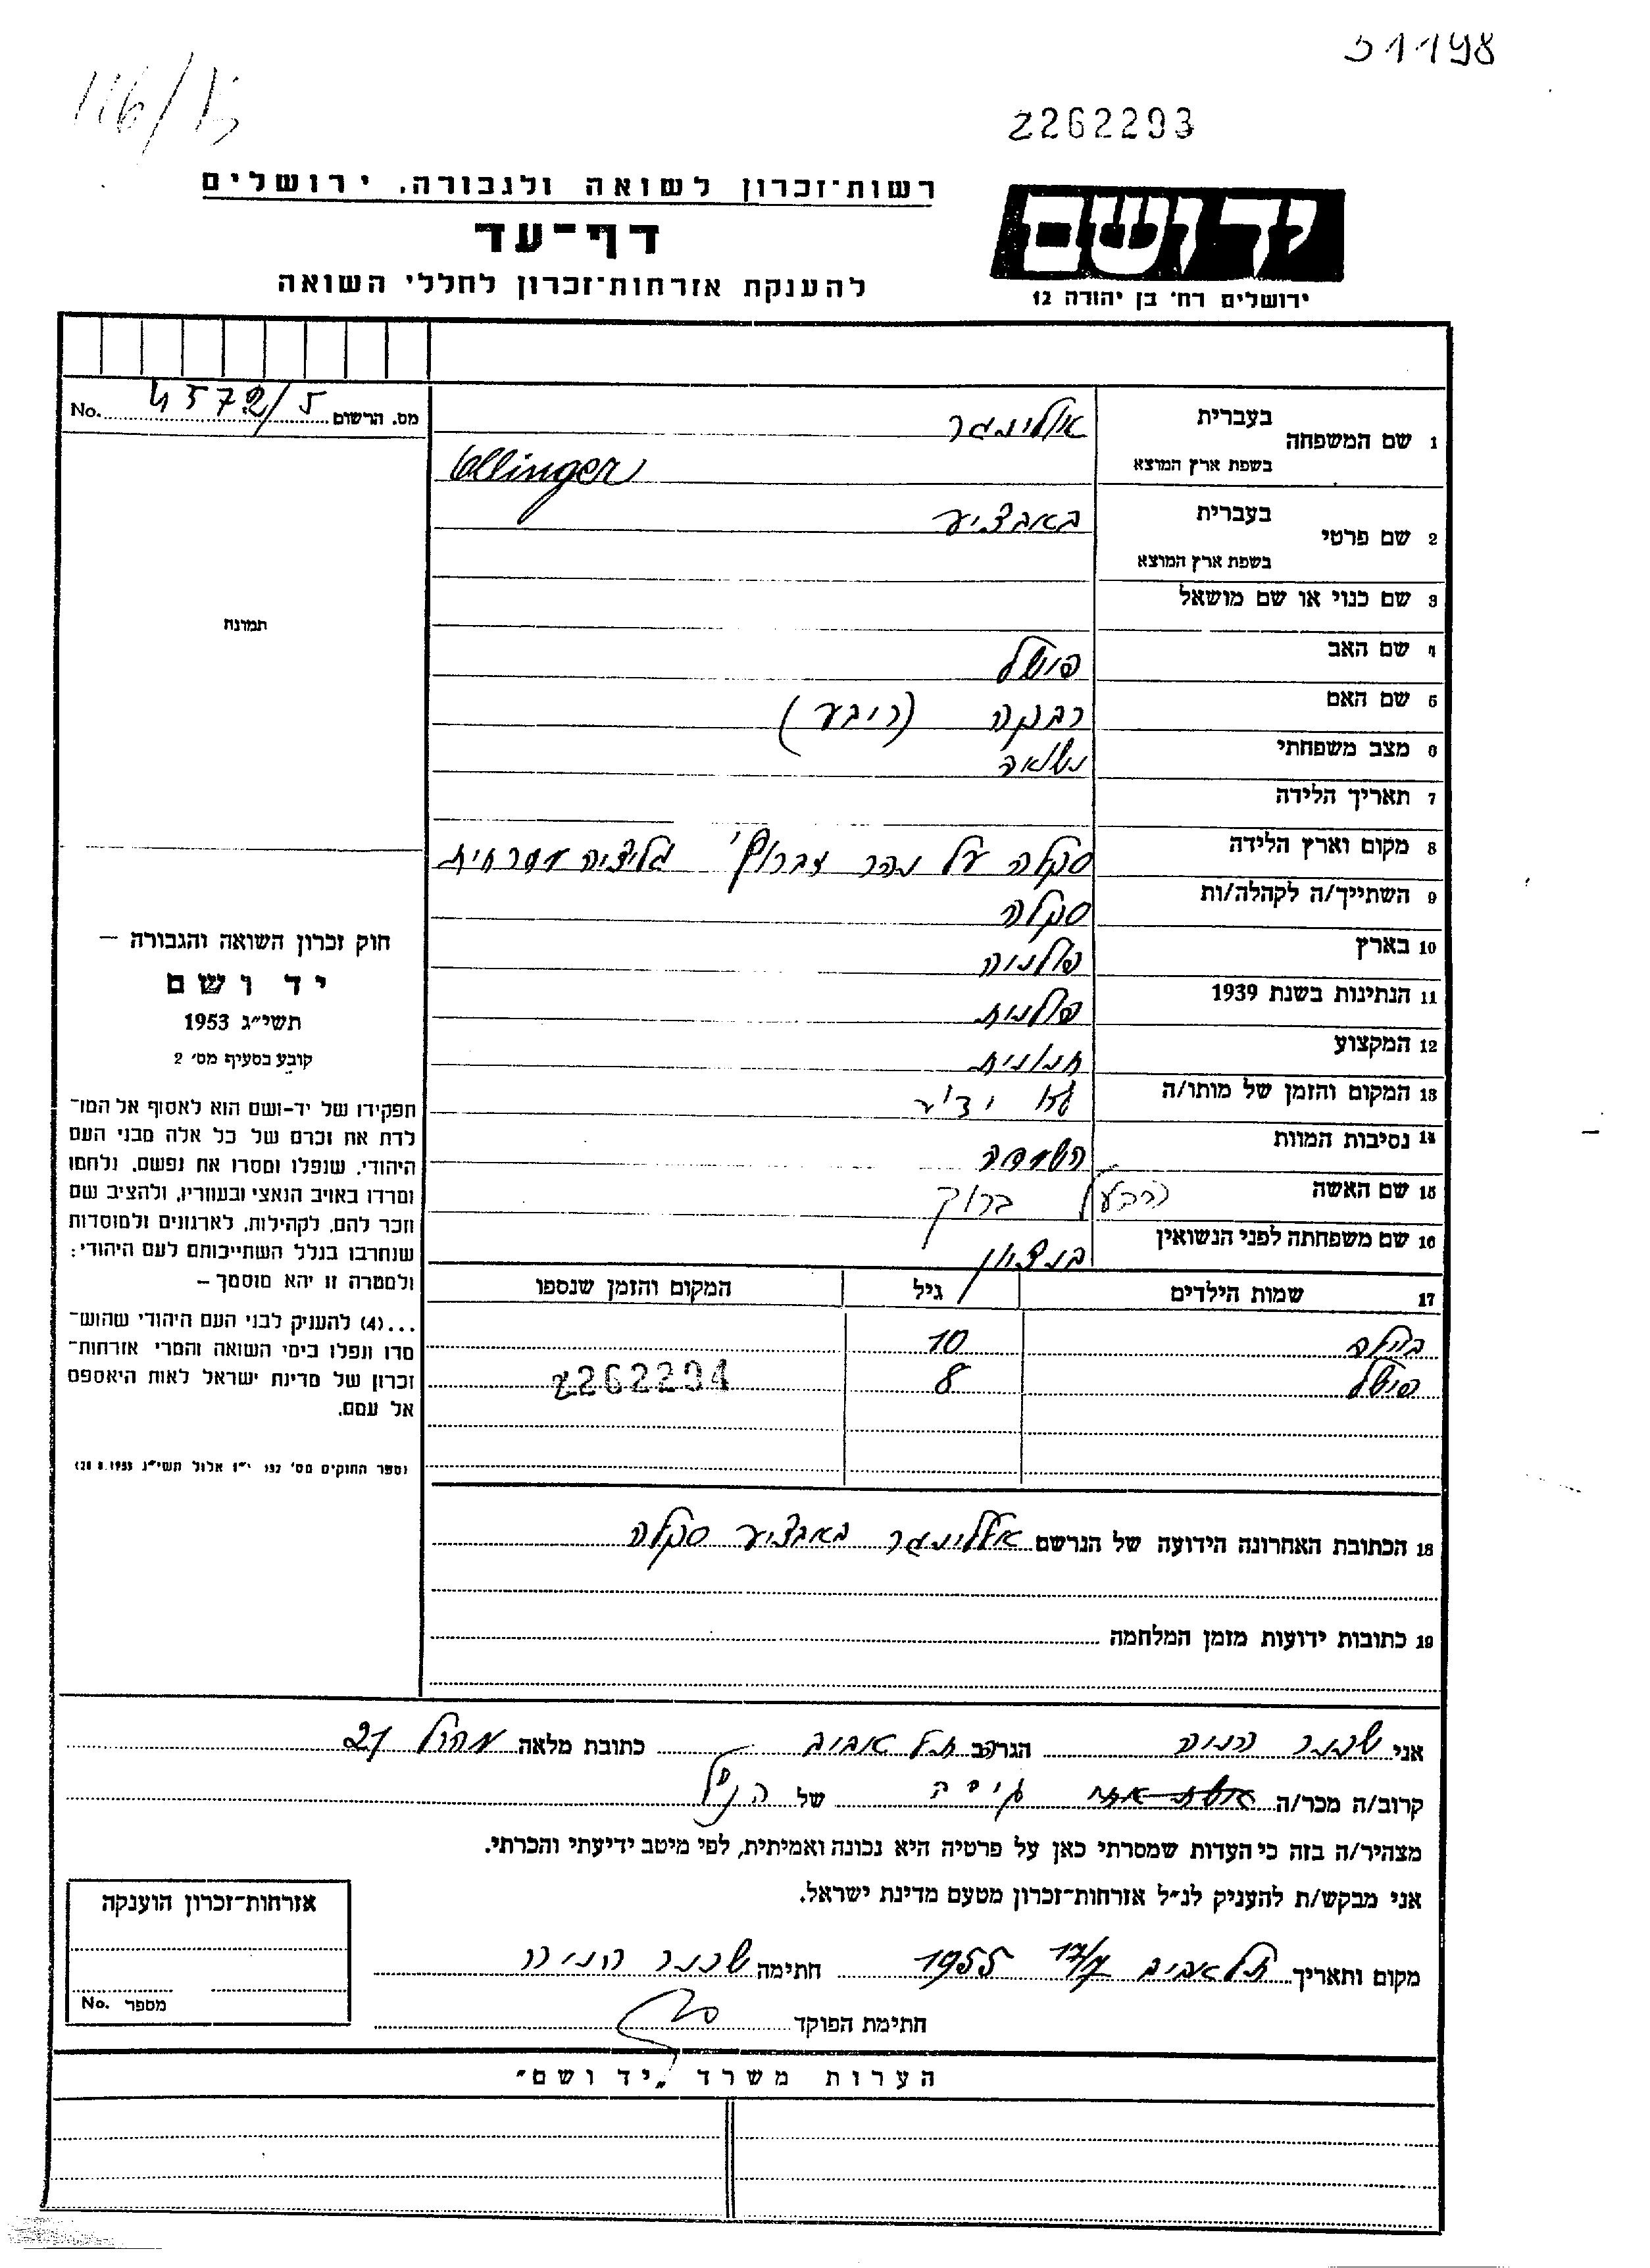 51198
116/15
2262293
רשות־זכרון לשואה ולגבורה, ירושלים
דף־עד
להענקת אזרחות־זכרון לחללי השואה
יד ושם
ירושלים רח׳ בן יהודה 12
מס. הרשום 4572/5 No.
1 שם המשפחה
בעברית אולינגר
בשפת ארץ המוצא Ullinger
2 שם פרטי
בעברית
בשפת ארץ המוצא
3 שם כנוי או שם מושאל
4 שם האב פישל
5 שם האם רבקה (ריבע)
6 מצב משפחתי נשואה
7 תאריך הלידה
8 מקום וארץ הלידה סקלה על נהר זברוץ׳ גליציה מזרחית
9 השתייך/ה לקהלה/ות סקלה
10 בארץ פולניה
11 הנתינות בשנת 1939 פולנית
12 המקצוע חנונית
13 המקום והזמן של מותו/ה לא ידוע
14 נסיבות המוות השמדה
15 שם האשה (הבעל) ברוך
16 שם משפחתה לפני הנשואין בנציון
17 שמות הילדים גיל המקום והזמן שנספו
ביילה 10
פישל 8
2262294
תמונה
חוק זכרון השואה והגבורה –
יד ושם
תשי״ג 1953
קובע בסעיף מס׳ 2
תפקידו של יד-ושם הוא לאסוף אל המו־
לדת את זכרם של כל אלה מבני העם
היהודי, שנפלו ומסרו את נפשם, נלחמו
ומרדו באויב הנאצי ובעוזריו, ולהציב שם
וזכר להם, לקהילות, לארגונים ולמוסדות
שנחרבו בגלל השתייכותם לעם היהודי;
ולמטרה זו יהא מוסמך –
...(4) להעניק לבני העם היהודי שהוש־
מדו ונפלו בימי השואה והמרי אזרחות־
זכרון של מדינת ישראל לאות היאספם
אל עמם.
(ספר החוקים מס׳ 132 י״ז אלול תשי״ג 28.8.1953)
18 הכתובת האחרונה הידועה של הנרשם אוללינגר סקלה
19 כתובות ידועות מזמן המלחמה
אני שכנר הניה הגר/ב תל אביב כתובת מלאה 21
קרוב/ה מכר/ה גיסה של הנ״ל
מצהיר/ה בזה כי העדות שמסרתי כאן על פרטיה היא נכונה ואמיתית, לפי מיטב ידיעתי והכרתי.
אני מבקש/ת להעניק לנ״ל אזרחות־זכרון מטעם מדינת ישראל.
מקום ותאריך תל אביב 17/7 1955 חתימה שכנר הניה
חתימת הפוקד
אזרחות־זכרון הוענקה
מספר No.
הערות משרד „יד ושם״